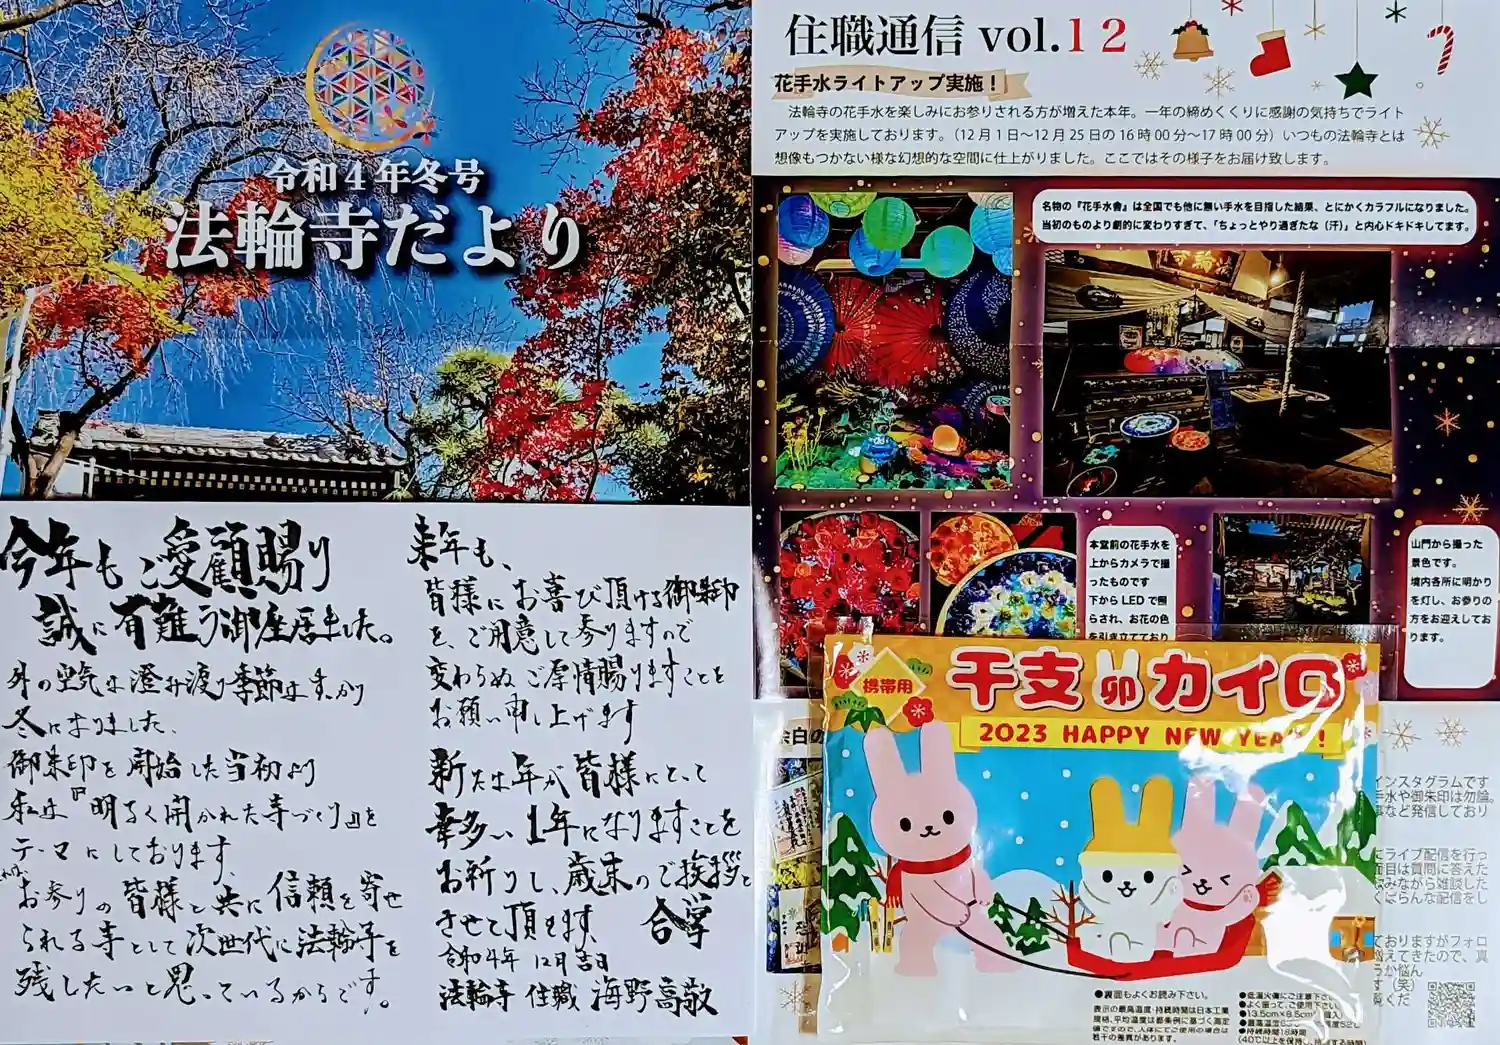 令和4年冬号
法輪寺だより
今年もご愛顧賜り
誠に有難う御座居ました。
外の空気は澄み渡り季節はすっかり
冬になりました。
御朱印を開始した当初より
私は『明るく開かれた寺づくり』を
テーマにしております。
それは、
お参りの皆様と共に信頼を寄せ
られる寺として次世代に法輪寺を
残したいと思っているからです。
来年も、
皆様にお喜び頂ける御朱印
を、ご用意して参りますので
変わらぬご厚情賜りますことを
お願い申し上げます
新たな年が皆様にとって
幸多い1年になりますことを
お祈りし、歳末のご挨拶と
させて頂きます。 合掌
令和4年 12月吉日
法輪寺 住職 海野高敬
住職通信 vol.12
花手水ライトアップ実施!
法輪寺の花手水を楽しみにお参りされる方が増えた本年。一年の締めくくりに感謝の気持ちでライト
アップを実施しております。（12月1日〜12月25日の16時00分〜17時00分）いつもの法輪寺とは
想像もつかない様な幻想的な空間に仕上がりました。ここではその様子をお届け致します。
名物の『花手水舎』は全国でも他に無い手水を目指した結果、とにかくカラフルになりました。
当初のものより劇的に変わりすぎて、「ちょっとやり過ぎたな（汗）」と内心ドキドキしてます。
本堂前の花手水を
上からカメラで撮
ったものです
下からLEDで照
らされ、お花の色
を引き立てており
山門から撮った
景色です。
境内各所に明かり
を灯し、お参りの
方をお迎えしてお
ります。
余白の
インスタグラムです
手水や御朱印は勿論。
事など発信しており
にライブ配信を行っ
面目は質問に答えた
飲みながら雑談した
くばらんな配信をし
ておりますがフォロ
増えてきたので、真
うか悩ん
す（笑）
覧くだ
携帯用
干支卯カイロ
2023 HAPPY NEW YEAR!
●裏面もよくお読み下さい。
表示の最高温度・持続時間は日本工業
規格、平均温度は都条例に基づく測定
値ですので、人体にてご使用の場合は
若干の差異があります。
●低温火傷にご注意下さい
●よく振って、ご使用下さい
●13.5cm×8.5cm
●最高温度
●持続時間18時間
(40℃以上を保持し持続する時間)